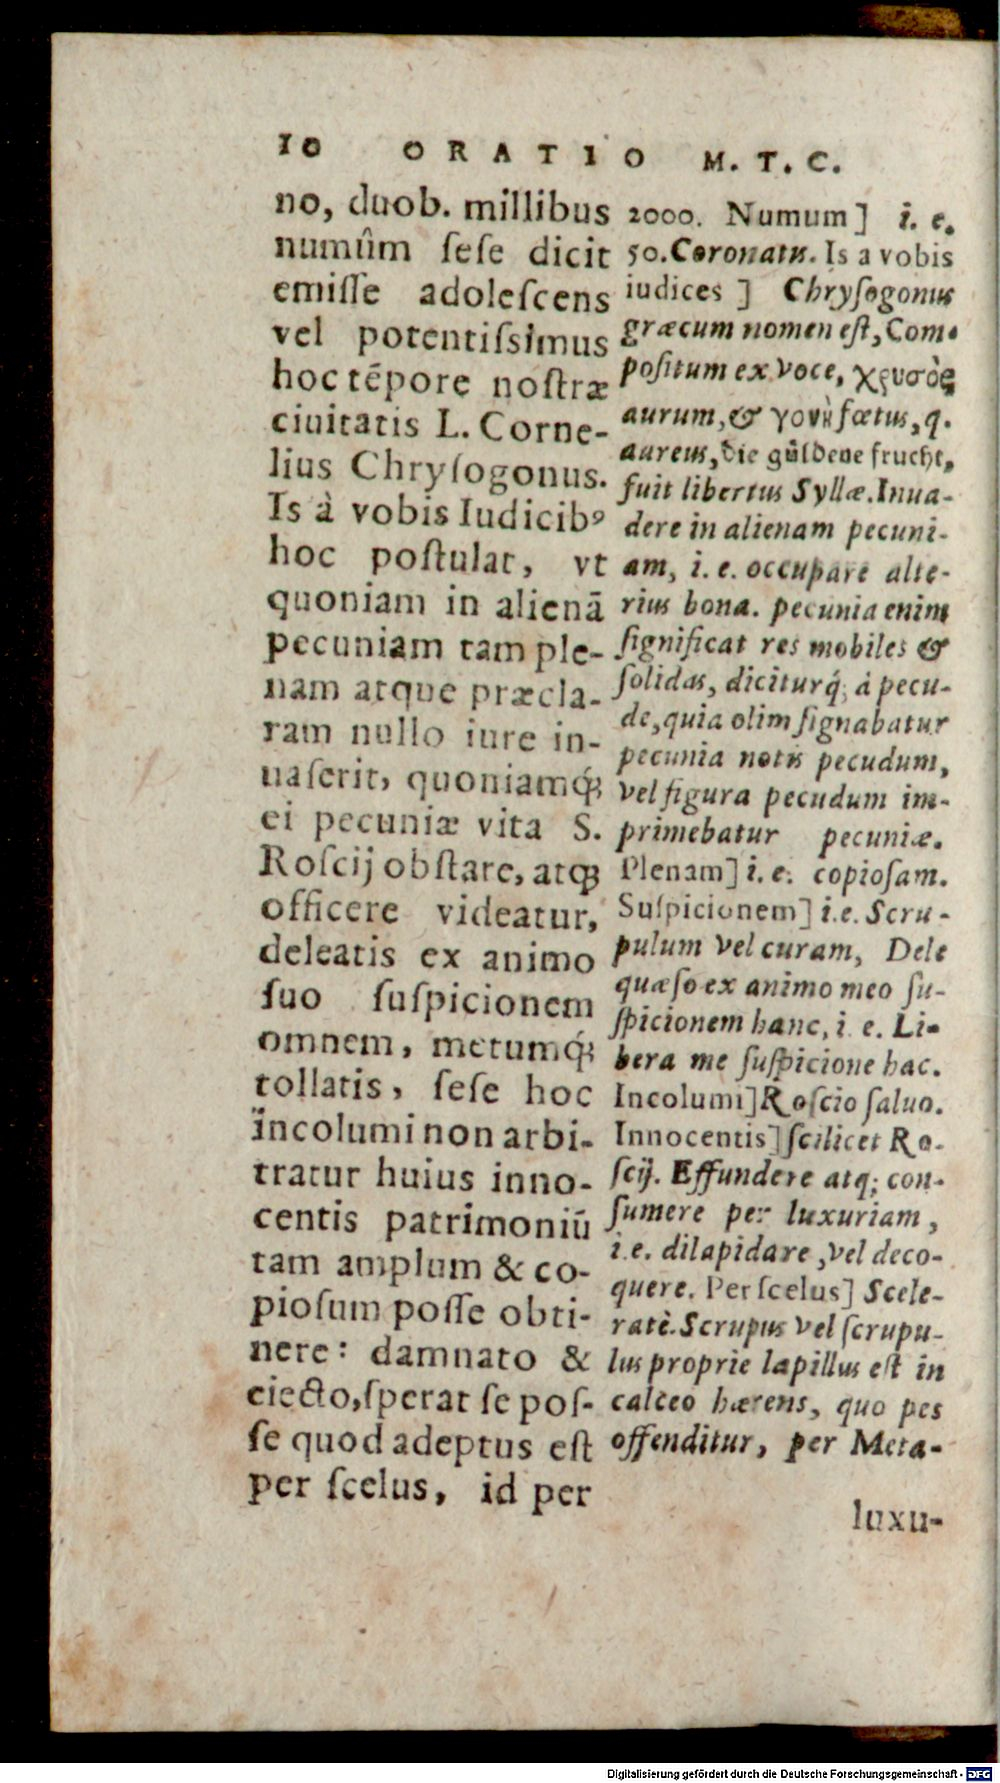 10 ORATIO M. T. C.
no, duob. millibus
numûm ſeſe dicit
emiſſe adoleſcens
vel potentiſsimus
hoc tẽpore noſtræ
ciuitatis L. Corne-
lius Chryſogonus.
Is à vobis Iudicibꝰ
hoc poſtulat, vt
quoniam in alienā
pecuniam tam ple-
nam atque præcla-
ram nullo iure in-
uaſerit, quoniamq́;
ei pecuniæ vita S.
Roſcij obſtare, atq;
officere videatur,
deleatis ex animo
ſuo ſuſpicionem
omnem, metumq́;
tollatis, ſeſe hoc
incolumi non arbi-
tratur huius inno-
centis patrimoniū
tam amplum & co-
pioſum poſſe obti-
nere: damnato &
eiecto, ſperat ſe poſ-
ſe quod adeptus eſt
per ſcelus, id per
2000. Numum] i. e.
50. Coronatis. Is a vobis
iudices ] Chryſogonus
græcum nomen eſt, Com-
poſitum ex voce, χρυσὸς
aurum, & γονὴ fœtus, q.
aureus, die gůldene frucht,
fuit libertus Syllæ. Inua-
dere in alienam pecuni-
am, i. e. occupare alte-
rius bona. pecunia enim
ſignificat res mobiles &
ſolidas, diciturq́; à pecu-
de, quia olim ſignabatur
pecunia notis pecudum,
vel figura pecudum im-
primebatur pecuniæ.
Plenam] i. e. copioſam.
Suſpicionem] i. e. Scru-
pulum vel curam, Dele
quæſo ex animo meo ſu-
ſpicionem hanc, i. e. Li-
bera me ſuſpicione hac.
Incolumi] Roſcio ſaluo.
Innocentis] ſcilicet Ro-
ſcij. Effundere atq; con-
ſumere per luxuriam,
i. e. dilapidare, vel deco-
quere. Per ſcelus] Scele-
ratè. Scrupus vel ſcrupu-
lus proprie lapillus eſt in
calceo hærens, quo pes
offenditur, per Meta-
luxu-
Digitalisierung gefördert durch die Deutsche Forschungsgemeinschaft - DFG